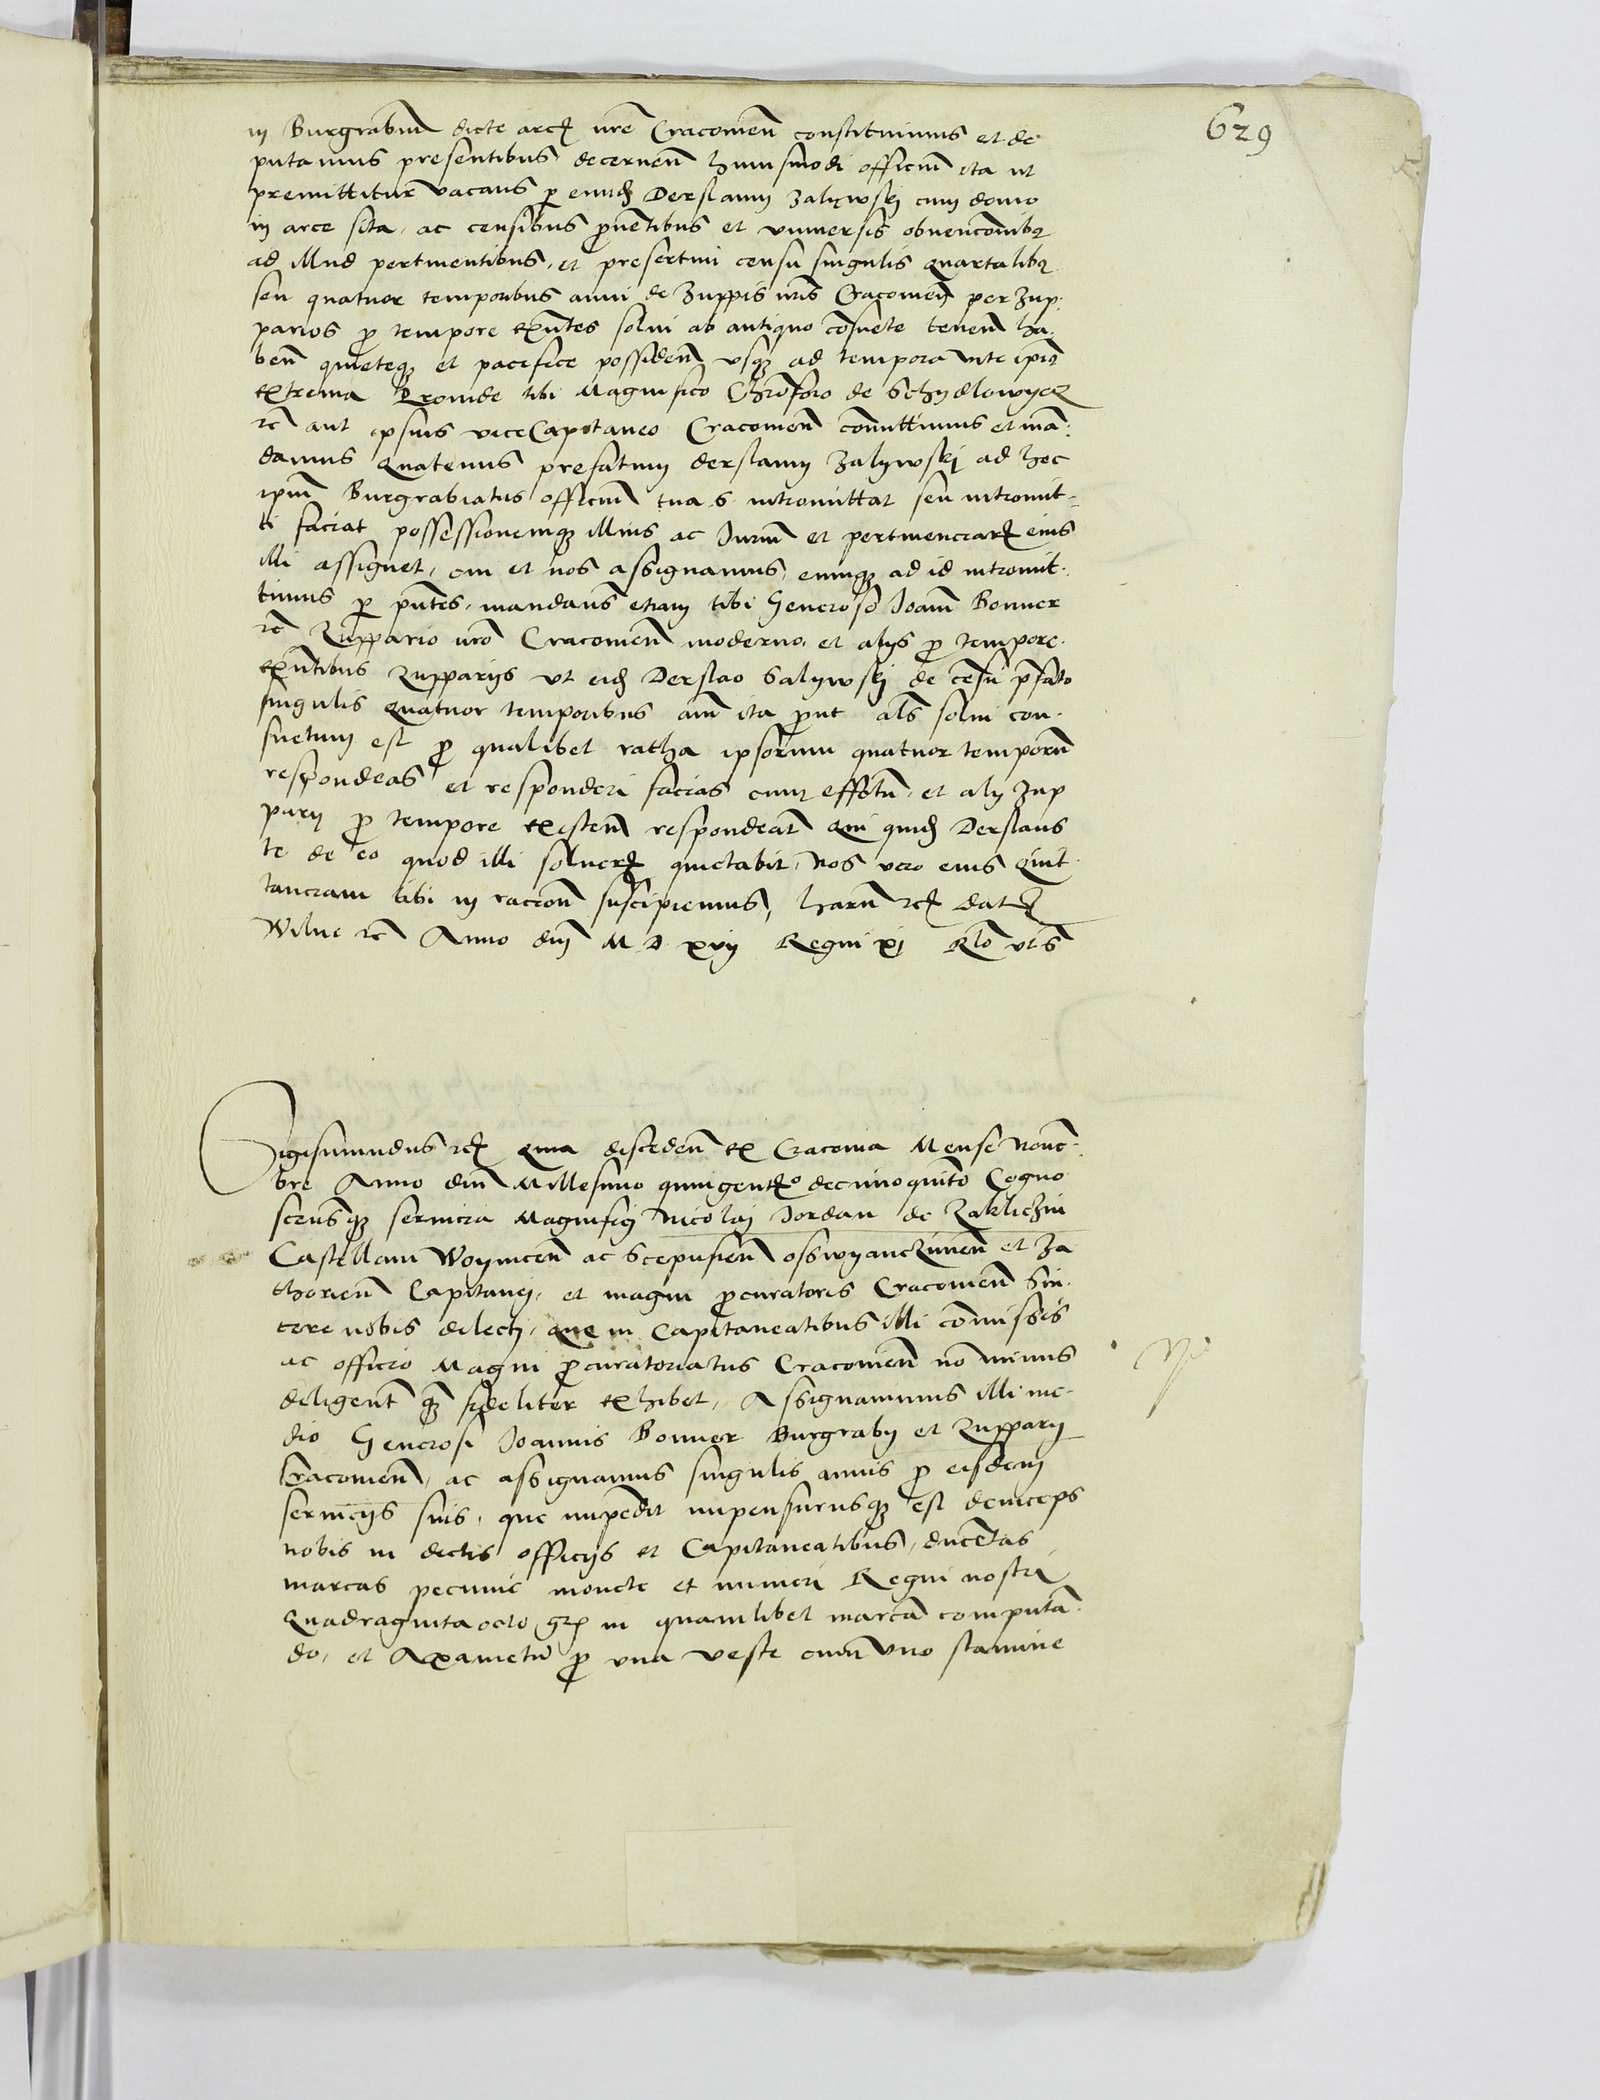 629
in Burgrabium dicte arcis nre Cracovien constituimus et de
putamus presentibus decernen huiusmodi officium ita ut
premittitur vacans per eund Derslaum Zalywskj cum domo
in arce sita, ac censibus proventibus et universis obvencionibus
ad illud pertinentibus, et presertim censu singulis quartalibus
seu quatuor temporibus anni de Zuppis nris Cracovien per Zup-
parios pro tempore existentes solui ab antiquo consuete tenen ha-
ben quieteque et pacifice possiden usque ad tempora vite ipius
extrema Proinde tibi Magnifico Christoforo de Schydlowyecz
etc aut ipsius viceCapitaneo Cracovien committimus et man-
damus quatenus prefatum derslaum Zalywskj ad hoc
ipium Burgrabiatus officium tua s intromittat seu intromit-
ti faciat possessionemque illius ac Iurium et pertinenciarum eius
illi assignet, cui et nos assignamus, eumque ad id intromit-
timus per pntes, mandans etiam tibi Generoso Ioanni Bonner
etc Zuppario nro Cracovien moderno, et alijs pro tempore
exntibus Zupparijs ut eid Derslao Salywskj de censu pfato
singulis quatuor temporibus anni ita prout als solui con-
suetum est pro qualibet ratha ipsorum quatuor temporum
respondeas et responderi facias cum effctu, et alij Zup
parij pro tempore existen respondeant qui quid Derslaus
te de eo quod illi solveris quietabit, nos vero eius quit-
tanciam tibi in racionem suscipiemus, harum etc dat
Wilne etc Anno dni M D xvij Regni xj Rlo uts
Sigismundus etc quia disceden ex Cracovia Mense Nove-
bre Anno dni Millesimo quingento decimoquinto Cogno
scensque servicia Magnifici Nicolaj Iordan de Zakliczin
Castellani Woynicen ac Scepusien osswyanczimen et Za
thorien Capitanej, et magni procuratoris Cracovien Sin-
cere nobis dilecti, que in Capitaneatibus illi commissis
ac officio Magni procuratoriatus Cracovien no minus
diligent quam fideliter exhibet, Assignavimus illi me-
dio Generosi Ioannis Bonner Burgrabij et Zupparij
Cracovien, ac assignamus singulis annis pro eisdem
servicijs suis, que impedit impensurusque est deinceps
nobis in dictis officijs et Capitaneatibus, ducentas
marcas pecunie monete et numeri Regni nostri
quadragintaocto gros in quamlibet marcam computan-
do, et Axametum pro una veste cum uno stamine